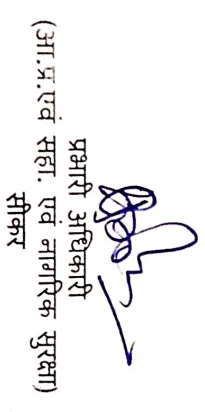 प्रभारी अधिकारी
(आ.प्र.एवं सहा. एवं नागरिक सुरक्षा)
सीकर